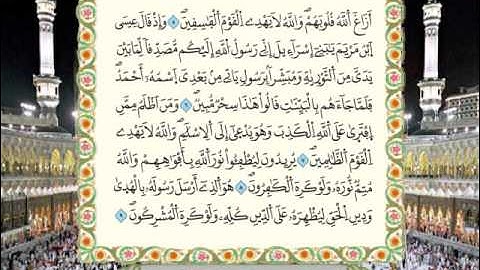 أَزَاغَ ٱللَّهُ قُلُوبَهُمْ وَٱللَّهُ لَا يَهْدِے اِ۬لْقَوْمَ اَ۬لْفَٰسِقِينَ ۝٥ وَإِذْ قَالَ عِيسَى
اَ۪بْنُ مَرْيَمَ يَٰبَنِےٓ إِسْرَآءِيلَ إِنِّے رَسُولُ اُ۬للَّهِ إِلَيْكُم مُّصَدِّقاٗ لِّمَا بَيْنَ
يَدَىَّ مِنَ اَ۬لتَّوْرَيٰةِ وَمُبَشِّراَۢ بِرَسُولٖ يَاتِے مِنۢ بَعْدِيَ اَ۪سْمُهُۥٓ أَحْمَدُ
فَلَمَّا جَآءَهُم بِالْبَيِّنَٰتِ قَالُواْ هَٰذَا سِحْرٞ مُّبِينٞ ۝٦ وَمَنَ اَظْلَمُ مِمَّنِ
اِ۪فْتَر۪يٰ عَلَى اَ۬للَّهِ اِ۬لْكَذِبَ وَهُوَ يُدْع۪يٰٓ إِلَى اَ۬لِاسْلَٰمِ وَاللَّهُ لَا يَهْدِے
اِ۬لْقَوْمَ اَ۬لظَّٰلِمِينَ ۝٧ يُرِيدُونَ لِيُطْفِـُٔواْ نُورَ اَ۬للَّهِ بِأَفْوَٰهِهِمْ وَاللَّهُ
مُتِمّٞ نُورَهُۥ وَلَوْ كَرِهَ اَ۬لْكَٰفِرُونَ ۝٨ هُوَ اَ۬لذِےٓ أَرْسَلَ رَسُولَهُۥ بِالْهُد۪يٰ
وَدِينِ اِ۬لْحَقِّ لِيُظْهِرَهُۥ عَلَى اَ۬لدِّينِ كُلِّهِۦ وَلَوْ كَرِهَ اَ۬لْمُشْرِكُونَ ۝٩